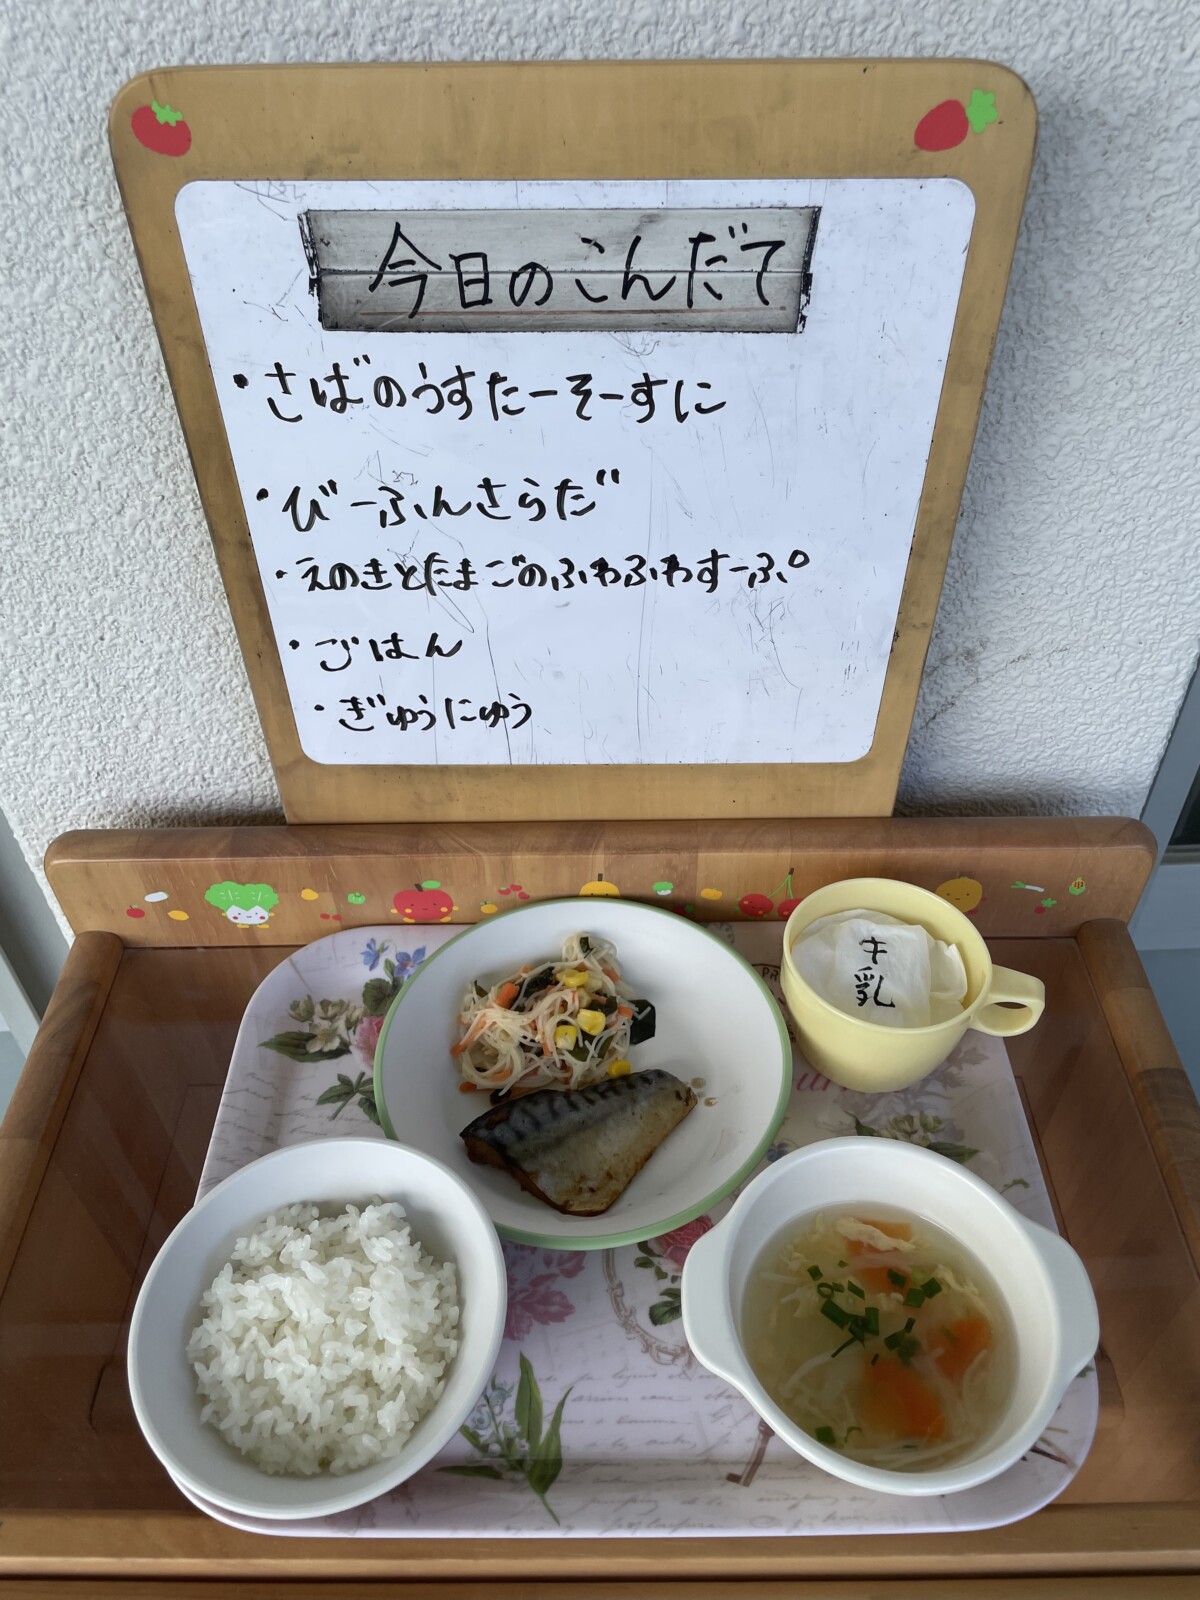 今日のこんだて
・さばのうすたーそーすに
・びーふんさらだ
・えのきとたまごのふわふわすーぷ
・ごはん
・ぎゅうにゅう
牛乳